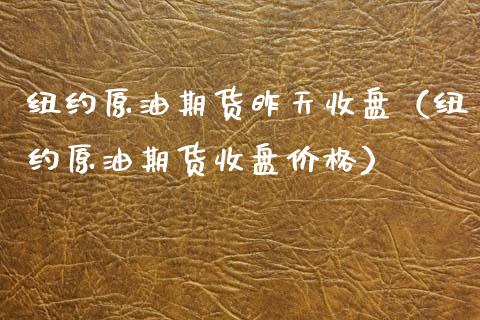 纽约原油期货昨天收盘（纽
约原油期货收盘价格）